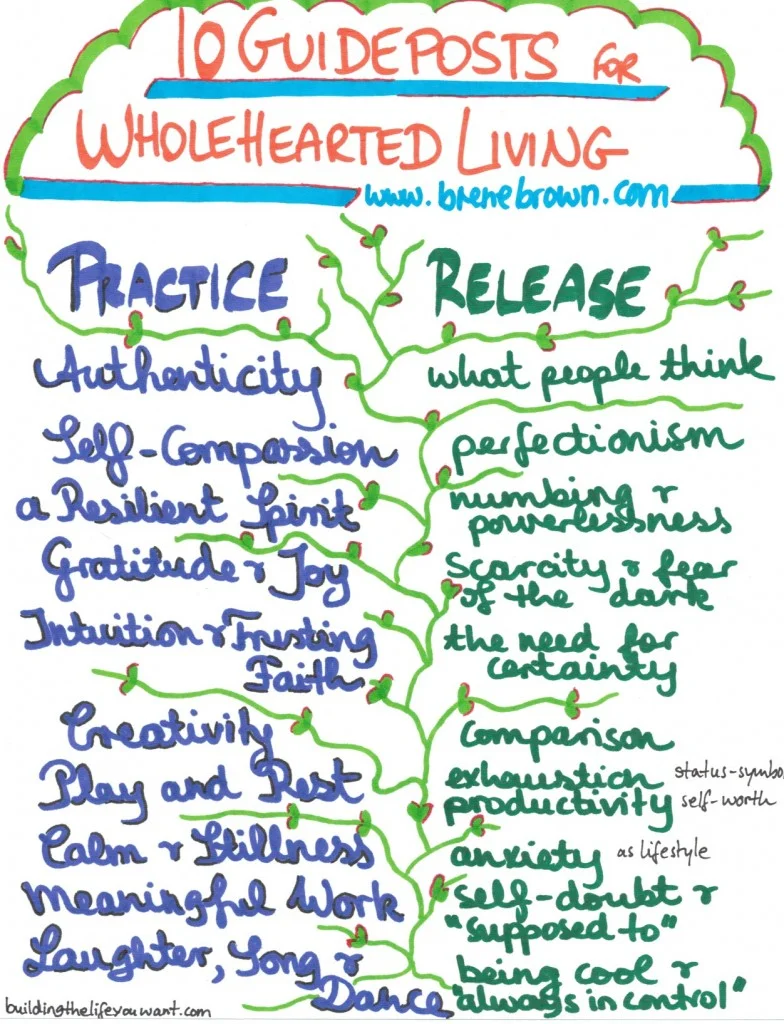 10 GUIDEPOSTS FOR
WHOLEHEARTED LIVING
www.brenebrown.com
PRACTICE
RELEASE
Authenticity
what people think
Self-Compassion
perfectionism
a Resilient Spirit
numbing &
powerlessness
Gratitude & Joy
scarcity & fear
of the dark
Intuition & Trusting
Faith
the need for
certainty
Creativity
comparison
Play and Rest
exhaustion status-symbo
productivity self-worth
Calm & Stillness
anxiety as lifestyle
Meaningful Work
self-doubt &
"supposed to"
Laughter, Song &
Dance
being cool &
"always in control"
buildingthelifeyouwant.com